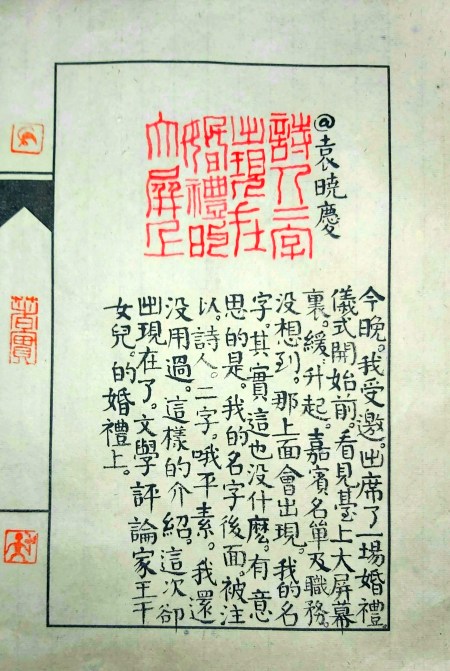 @袁曉慶
詩人二字
出現在
婚禮的
大屏上
今晚。我受邀。出席了一場婚禮。
儀式開始前。看見臺上大屏幕
裏。緩升起。嘉賓名單及職務。
没想到。那上面會出現。我的名
字其實這也没什麽。有意
思的是。我的名字後面。被注
以。詩人。二字。哦平素。我還
没用過。這樣的介紹。這次卻
出現在了。文學評論家王干
女兒。的婚禮上。